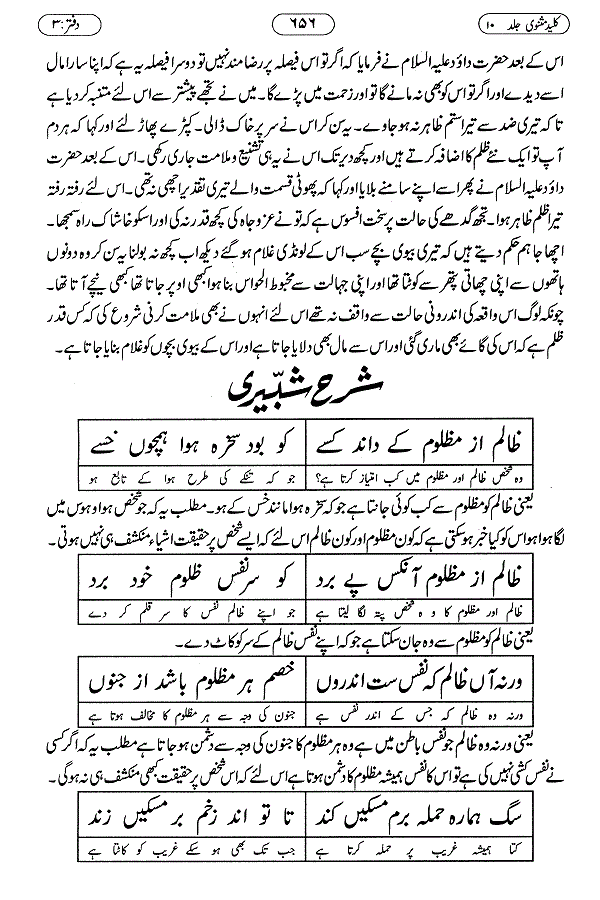 کلید مثنوی جلد ۱۰
۶۵۶
دفتر:۳
اس کے بعد حضرت داؤد علیہ السلام نے فرمایا کہ اگر تو اس فیصلہ پر رضا مند نہیں تو دوسرا فیصلہ یہ ہے کہ اپنا سارا مال
اسے دیدے اور اگر تو اس کو بھی نہ مانے گا تو اور زحمت میں پڑے گا۔ میں نے تجھے پیشتر سے اس لئے متنبہ کر دیا ہے
تا کہ تیری ضد سے تیرا ستم ظاہر نہ ہو جاوے۔ یہ سن کر اس نے سر پر خاک ڈالی۔ کپڑے پھاڑ لئے اور کہا کہ ہر دم
آپ تو ایک نئے ظلم کا اضافہ کرتے ہیں اور کچھ دیر تک اس نے یہ ہی تشنیع و ملامت جاری رکھی۔ اس کے بعد حضرت
داؤد علیہ السلام نے پھر اسے اپنے سامنے بلایا اور کہا کہ پھوٹی قسمت والے تیری تقدیر اچھی نہ تھی۔ اس لئے رفتہ رفتہ
تیرا ظلم ظاہر ہوا۔ تجھ گدھے کی حالت پر سخت افسوس ہے کہ تو نے عز و جاہ کی کچھ قدر نہ کی اور اسکو خاشاک راہ سمجھا۔
اچھا جا ہم حکم دیتے ہیں کہ تیری بیوی بچے سب اس کے لونڈی غلام ہو گئے دیکھ اب کچھ نہ بولنا یہ سن کر وہ دونوں
ہاتھوں سے اپنی چھاتی پتھر سے کوٹتا تھا اور اپنی جہالت سے مخبوط الحواس بنا ہوا کبھی اوپر جاتا تھا کبھی نیچے آتا تھا۔
چونکہ لوگ اس واقعہ کی اندرونی حالت سے واقف نہ تھے اس لئے انہوں نے بھی ملامت کرنی شروع کی کہ کس قدر
ظلم ہے کہ اس کی گائے بھی ماری گئی اور اس سے مال بھی دلایا جاتا ہے اور اس کے بیوی بچوں کو غلام بنایا جاتا ہے۔
شرح شبیری
ظالم از مظلوم کے داند کسے کو بود سخرہ ہوا ہمچوں خسے
وہ شخص ظالم اور مظلوم میں کب امتیاز کرتا ہے؟ جو کہ تنکے کی طرح ہوا کے تابع ہو
یعنی ظالم کو مظلوم سے کب کوئی جانتا ہے جو کہ سخرہ ہوا مانند خس کے ہو۔ مطلب یہ کہ جو شخص ہوا و ہوس میں
لگا ہوا ہو اس کو کیا خبر ہو سکتی ہے کہ کون مظلوم اور کون ظالم اس لئے کہ ایسے شخص پر حقیقت اشیاء منکشف ہی نہیں ہوتی۔
ظالم از مظلوم آنکس پے برد کو سر نفس ظلوم خود برد
ظالم اور مظلوم کا وہ شخص پتہ لگا لیتا ہے جو اپنے ظالم نفس کا سر قلم کر دے
یعنی ظالم کو مظلوم سے وہ جان سکتا ہے جو کہ اپنے نفس ظالم کے سر کو کاٹ دے۔
ورنہ آں ظالم کہ نفس ست اندروں خصم ہر مظلوم باشد از جنوں
ورنہ وہ ظالم کہ جس کے اندر نفس ہے جنون کی وجہ سے ہر مظلوم کا مخالف ہوتا ہے
یعنی ورنہ وہ ظالم جو نفس باطن میں ہے وہ ہر مظلوم کا جنون کی وجہ سے دشمن ہو جاتا ہے مطلب یہ کہ اگر کسی
نے نفس کشی نہیں کی ہے تو اس کا نفس ہمیشہ مظلوم کا دشمن ہوتا ہے اس لئے کہ اس شخص پر حقیقت کبھی منکشف ہی نہ ہو گی۔
سگ ہمارہ حملہ برم مسکیں کند تا تو اند زخم بر مسکیں زند
کتا ہمیشہ غریب پر حملہ کرتا ہے جب تک بھی ہو سکے غریب کو کاٹتا ہے